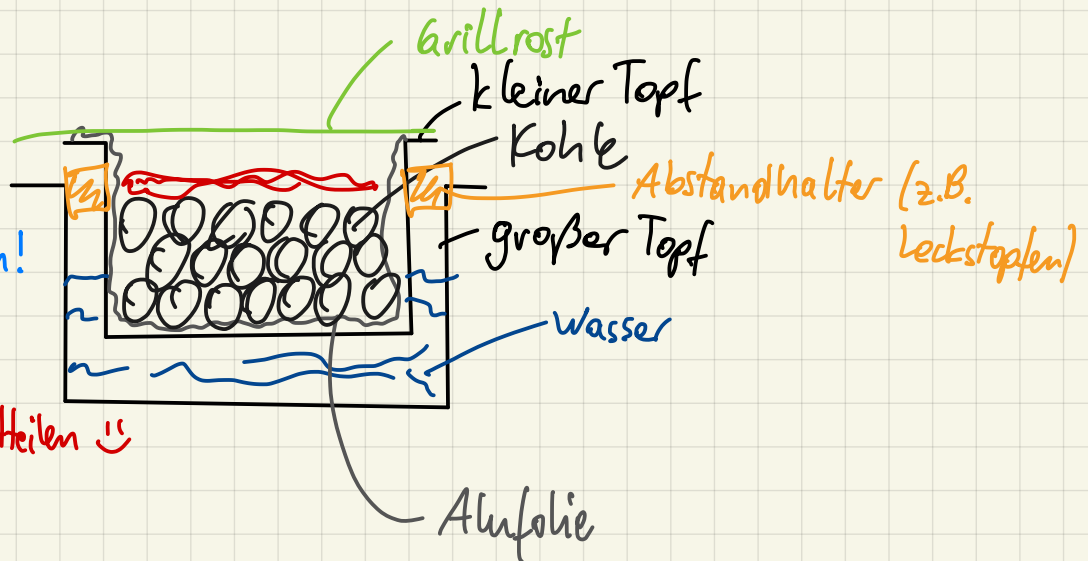 Grillrost
kleiner Topf
Kohle
Abstandhalter (z.B.
Leckstopfen)
großer Topf
n!
Wasser
Heilen :)
Alufolie